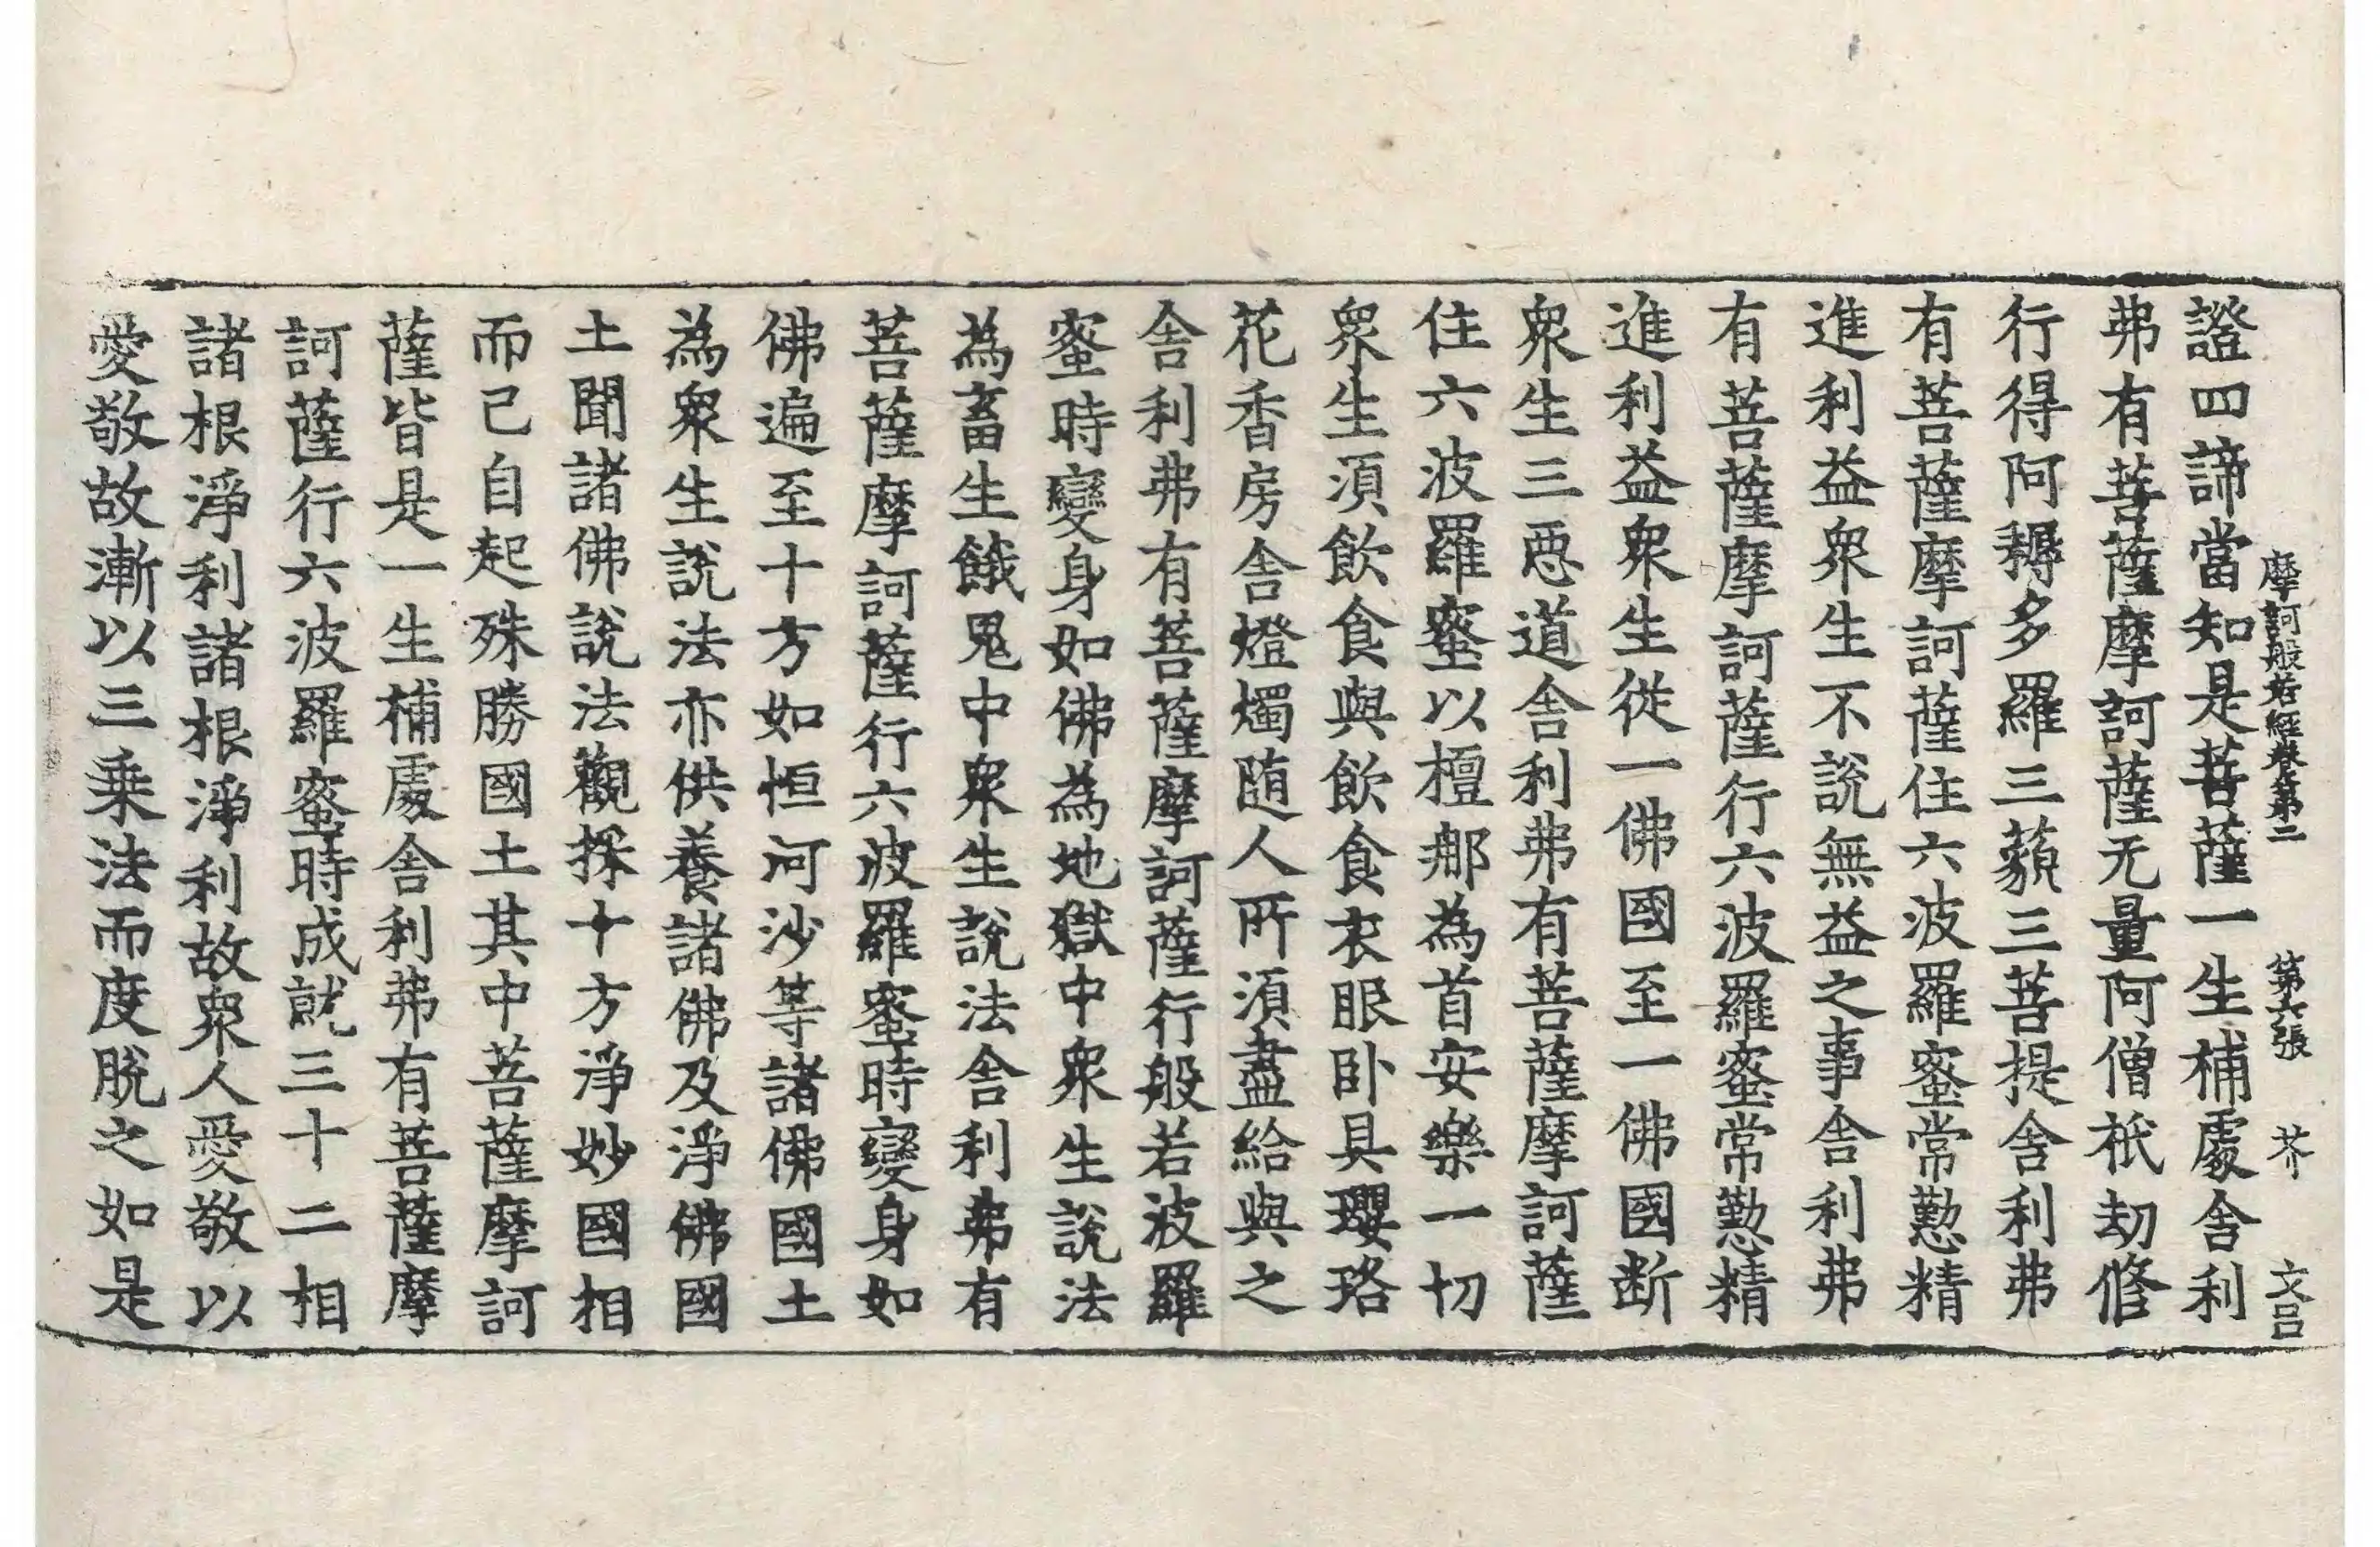 摩訶般若經卷第二　第六張　芥　文呂
證四諦當知是菩薩一生補處舍利
弗有菩薩摩訶薩无量阿僧祇劫修
行得阿耨多羅三藐三菩提舍利弗
有菩薩摩訶薩住六波羅蜜常懃精
進利益衆生不說無益之事舍利弗
有菩薩摩訶薩行六波羅蜜常懃精
進利益衆生從一佛國至一佛國断
衆生三惡道舍利弗有菩薩摩訶薩
住六波羅蜜以檀那為首安樂一切
衆生須飲食與飲食衣眼卧具瓔珞
花香房舍燈燭随人所須盡給與之
舍利弗有菩薩摩訶薩行般若波羅
蜜時變身如佛為地獄中衆生說法
為畜生餓鬼中衆生說法舍利弗有
菩薩摩訶薩行六波羅蜜時變身如
佛遍至十方如恒河沙等諸佛國土
為衆生說法亦供養諸佛及淨佛國
土聞諸佛說法觀採十方淨妙國相
而已自起殊勝國土其中菩薩摩訶
薩皆是一生補處舍利弗有菩薩摩
訶薩行六波羅蜜時成就三十二相
諸根淨利諸根淨利故衆人愛敬以
愛敬故漸以三乗法而度脫之如是